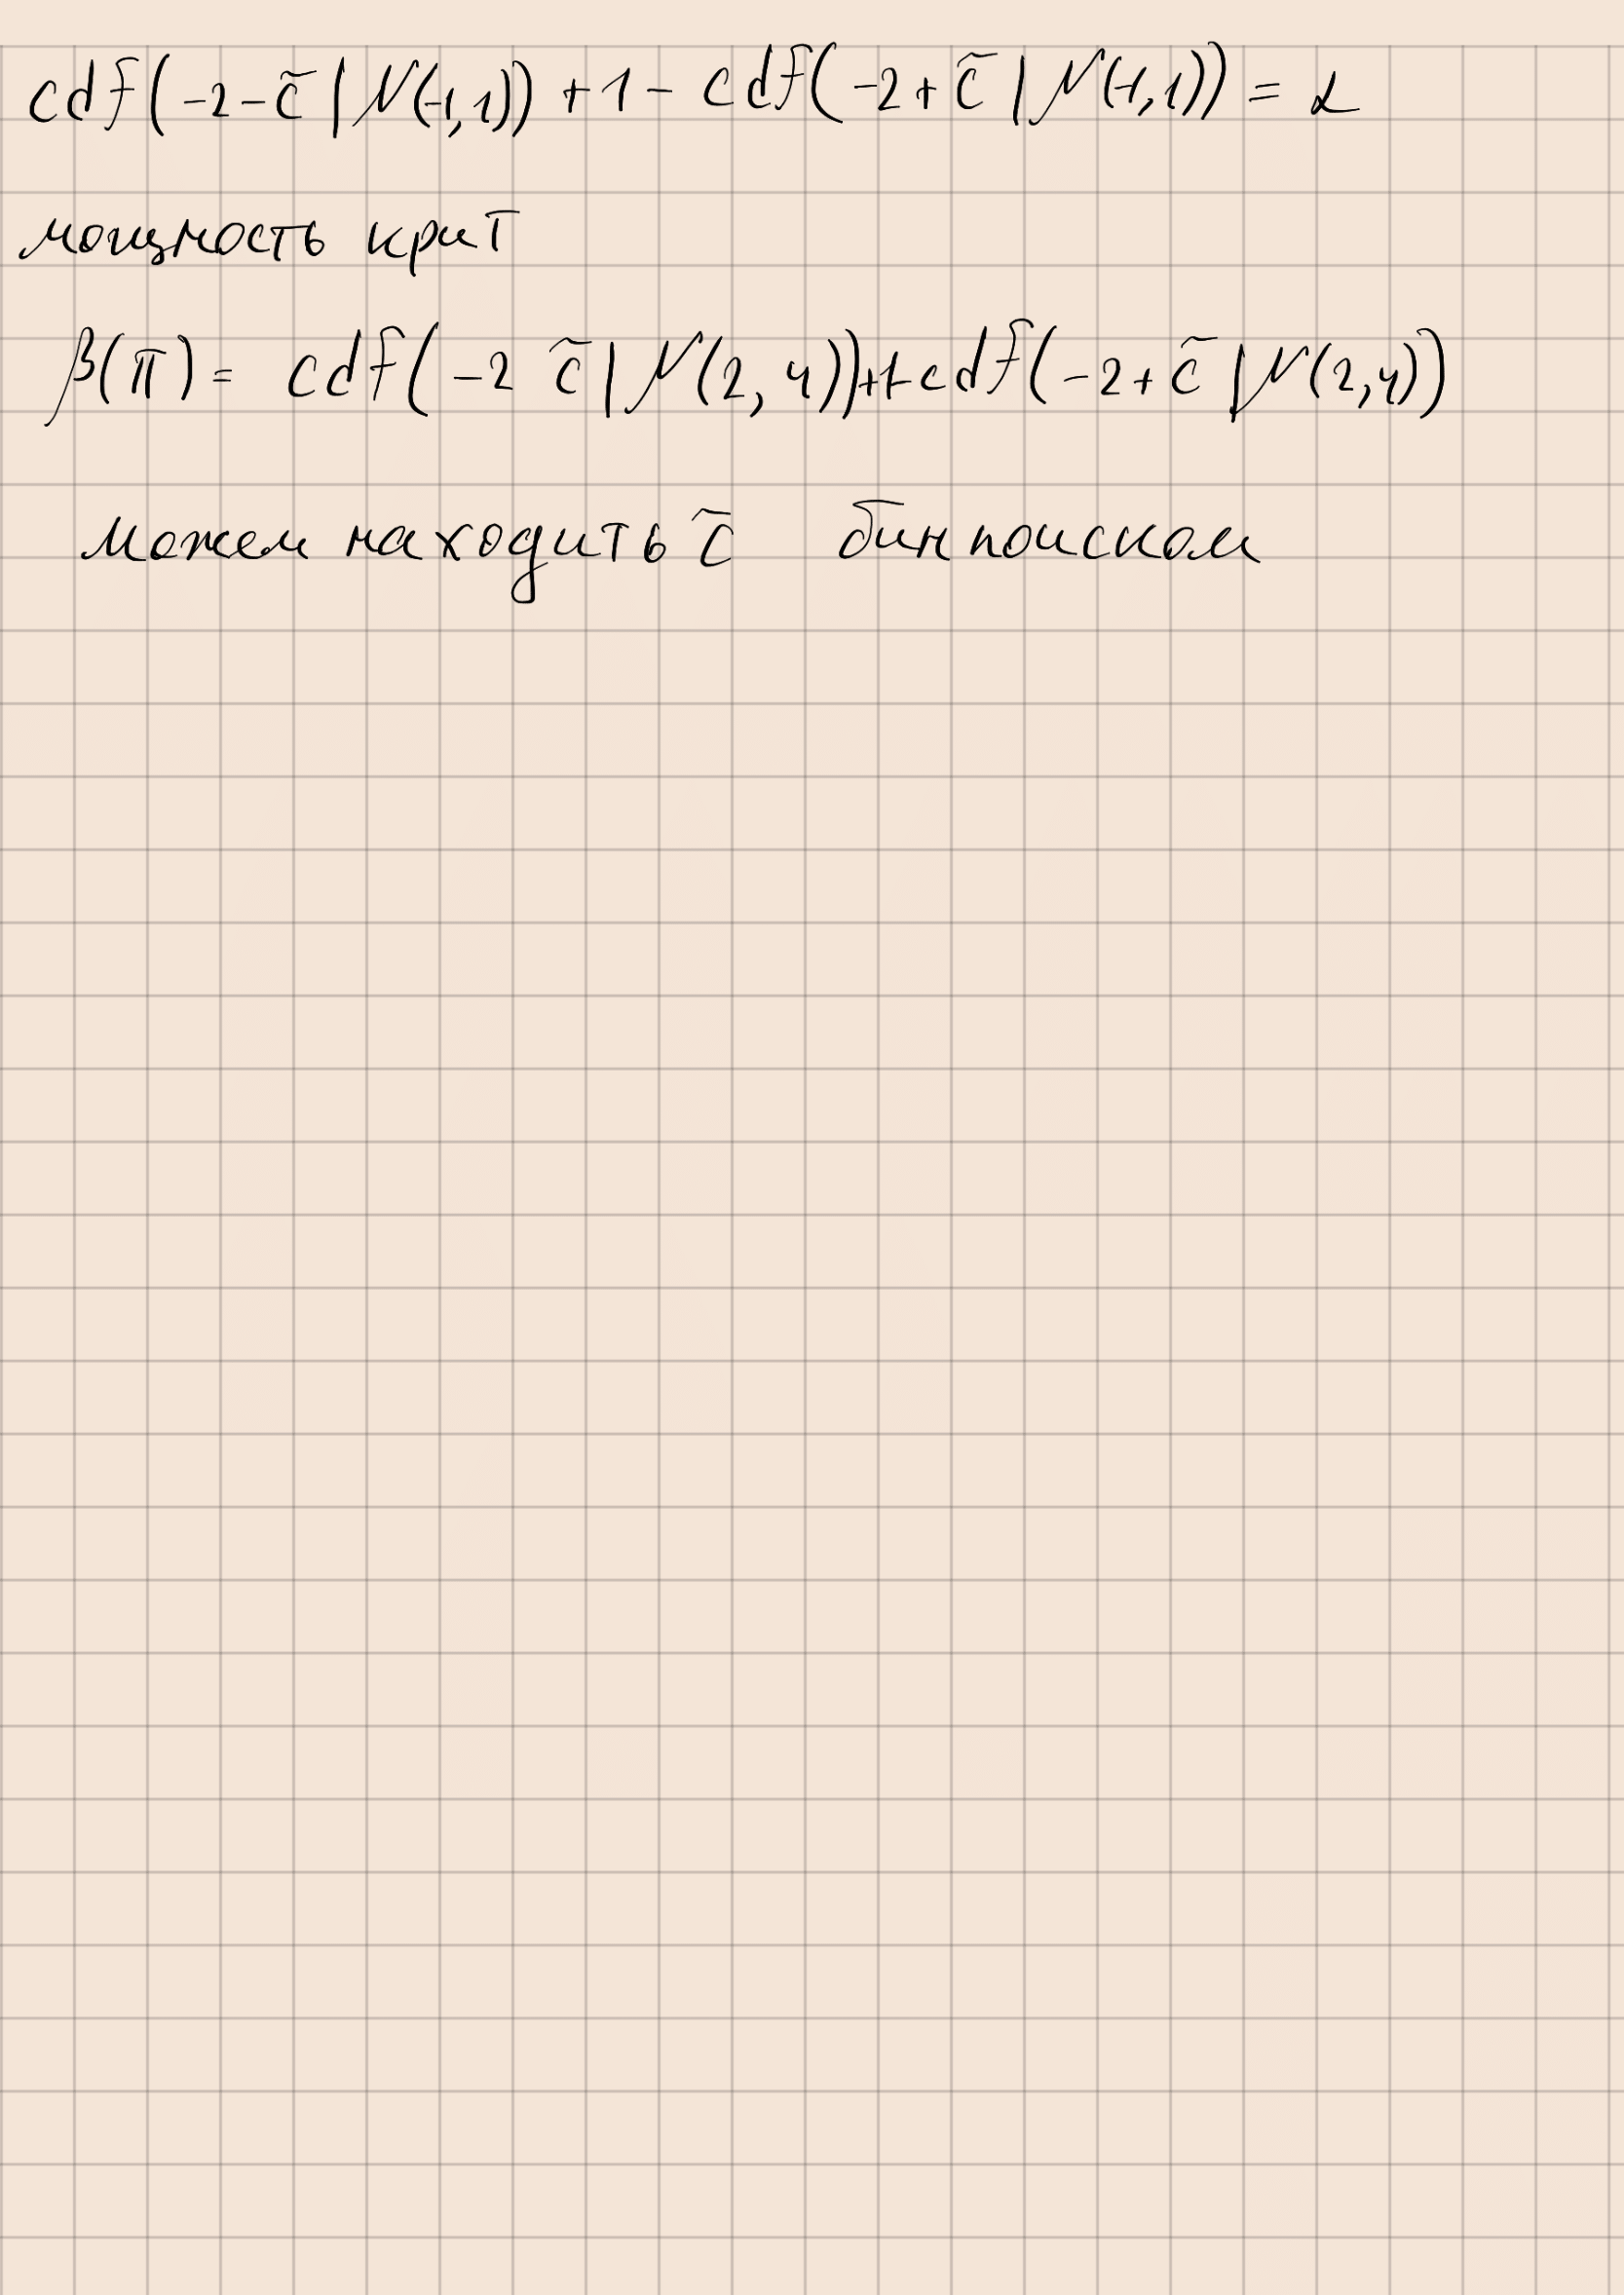 cdf(-2-c̃ | N(-1,1)) + 1 - cdf(-2+c̃ | N(-1,1)) = α
мощность крит
β(π) = cdf(-2 c̃ | N(2, 4))+1-cdf(-2+c̃ | N(2,4))
можем находить c̃ бинпоиском